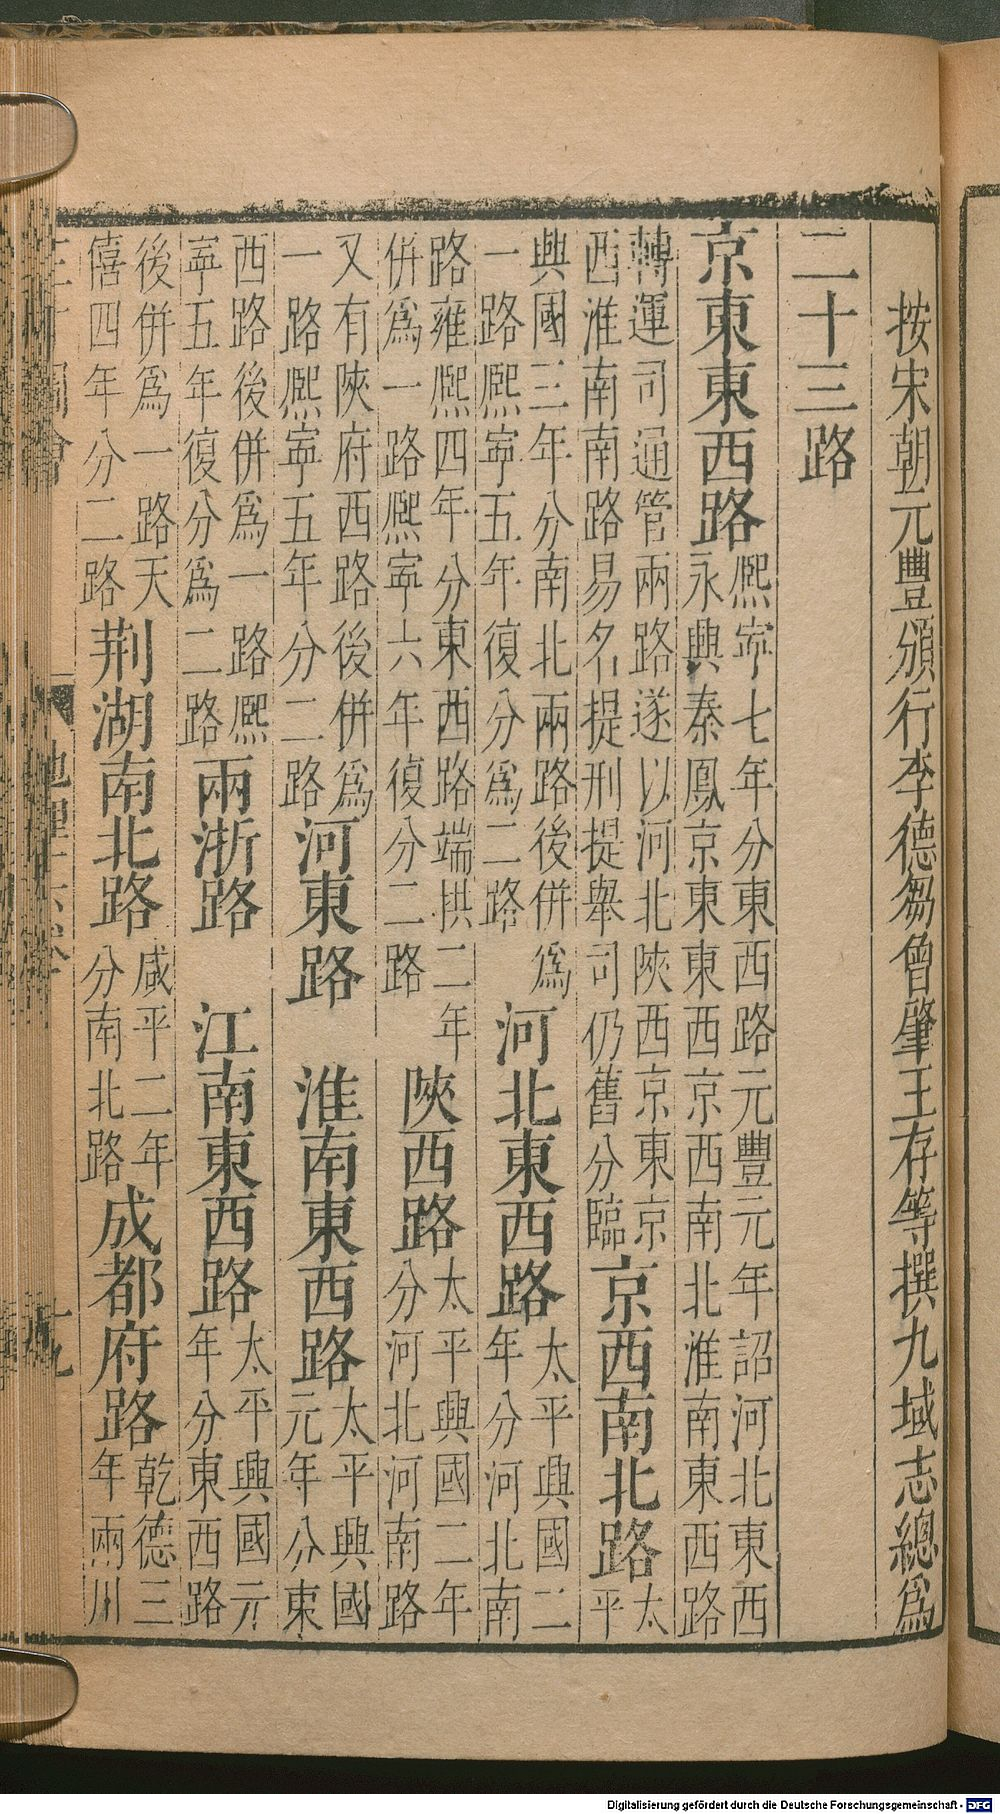 按宋朝元豐頒行李德芻曾肇王存等撰九域志總為
二十三路
京東東西路
熈寧七年分東西路元豐元年詔河北東西
永興秦鳳京東東西京西南北淮南東西路
轉運司通管兩路遂以河北陜西京東京
西淮南南路易名提刑提舉司仍舊分臨
京西南北路
太
平
興國三年分南北兩路後併為
一路熈寧五年復分為二路
河北東西路
太平興國二
年分河北南
路雍熈四年分東西路端拱二年
併為一路熈寧六年復分二路
陜西路
太平興國二年
分河北河南路
又有陜府西路後併為
一路熈寧五年分二路
河東路
淮南東西路
太平興國
元年分東
西路後併為一路熈
寧五年復分為二路
兩浙路
江南東西路
太平興國元
年分東西路
後併為一路天
僖四年分二路
荆湖南北路
咸平二年
分南北路
成都府路
乾德三
年兩川
三才圖會
地理
Digitalisierung gefördert durch die Deutsche Forschungsgemeinschaft - DFG